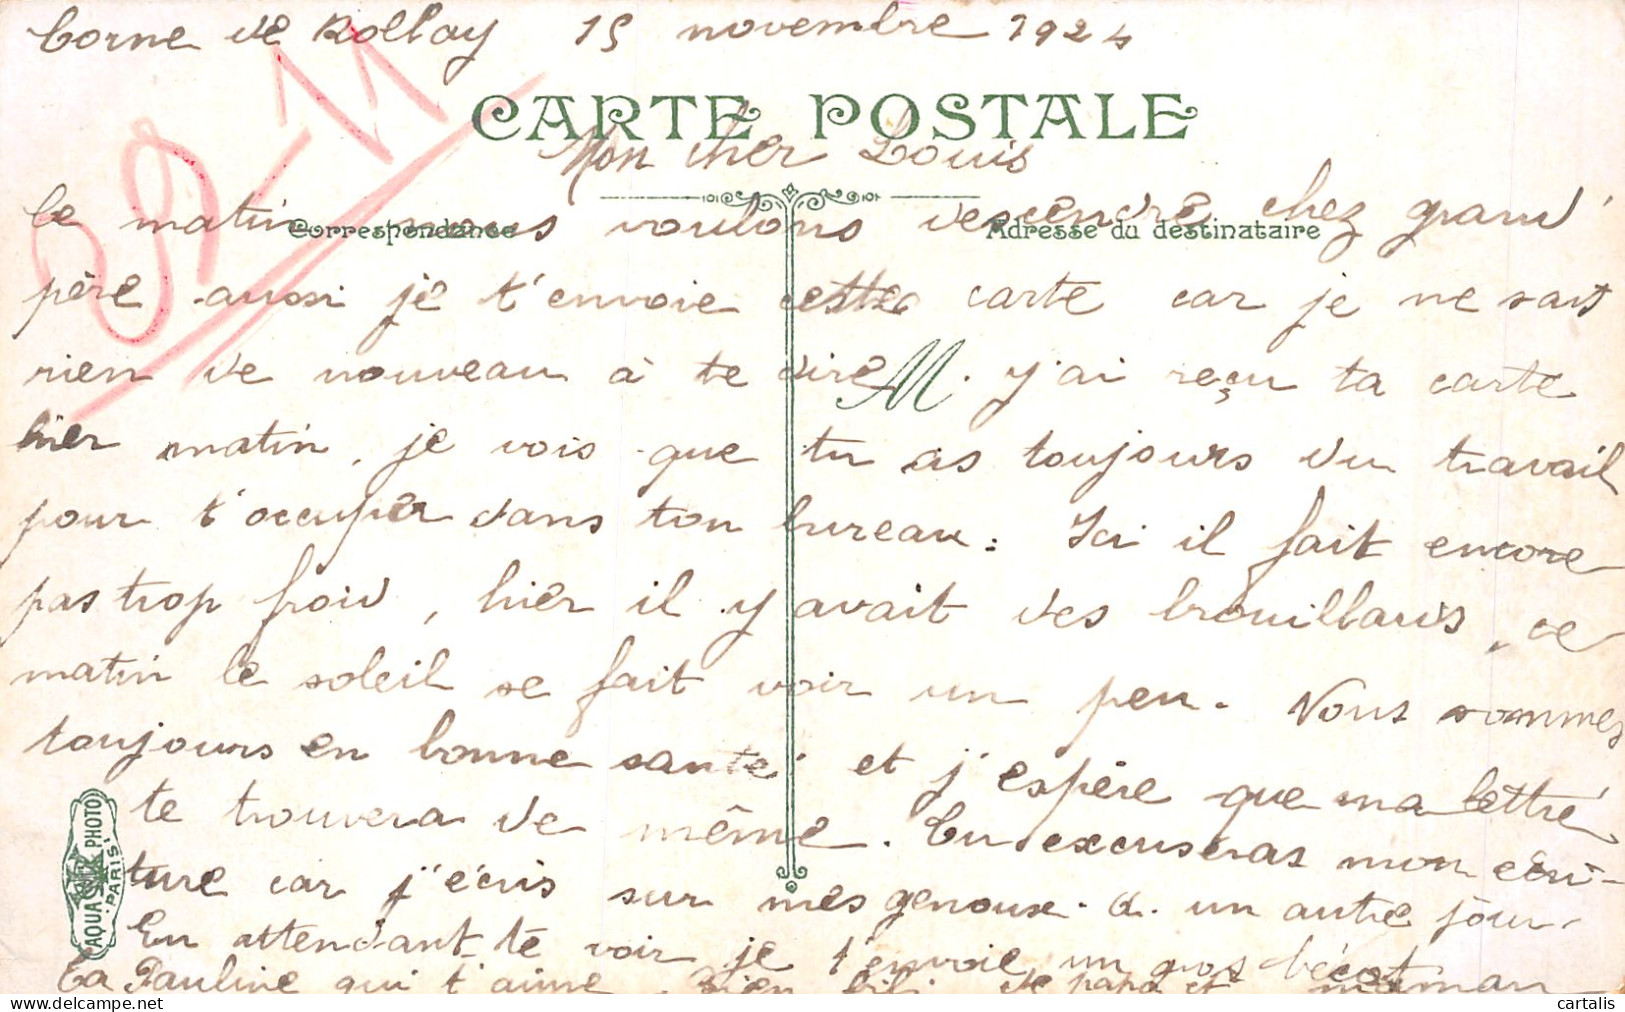 Corne de Rollay 15 novembre 1924
9-11
CARTE POSTALE
Mon cher Louis
Correspondance
Adresse du destinataire
Ce matin nous voulons descendre chez grand'
père aussi je t'envoie cette carte car je ne sais
rien de nouveau à te dire M. j'ai reçu ta carte
hier matin, je vois que tu as toujours du travail
pour t'occuper dans ton bureau. Ici il fait encore
pas trop froid, hier il y avait des brouillards, ce
matin le soleil se fait voir un peu. Nous sommes
toujours en bonne santé et j'espère que ma lettre
te trouvera de même. Tu excuseras mon écri-
ture car j'écris sur mes genoux. à un autre jour.
En attendant te voir je t'envoie un gros bécot
Ta Pauline qui t'aime. Bien de papa et maman
AQUA PHOTO
PARIS
cartalis